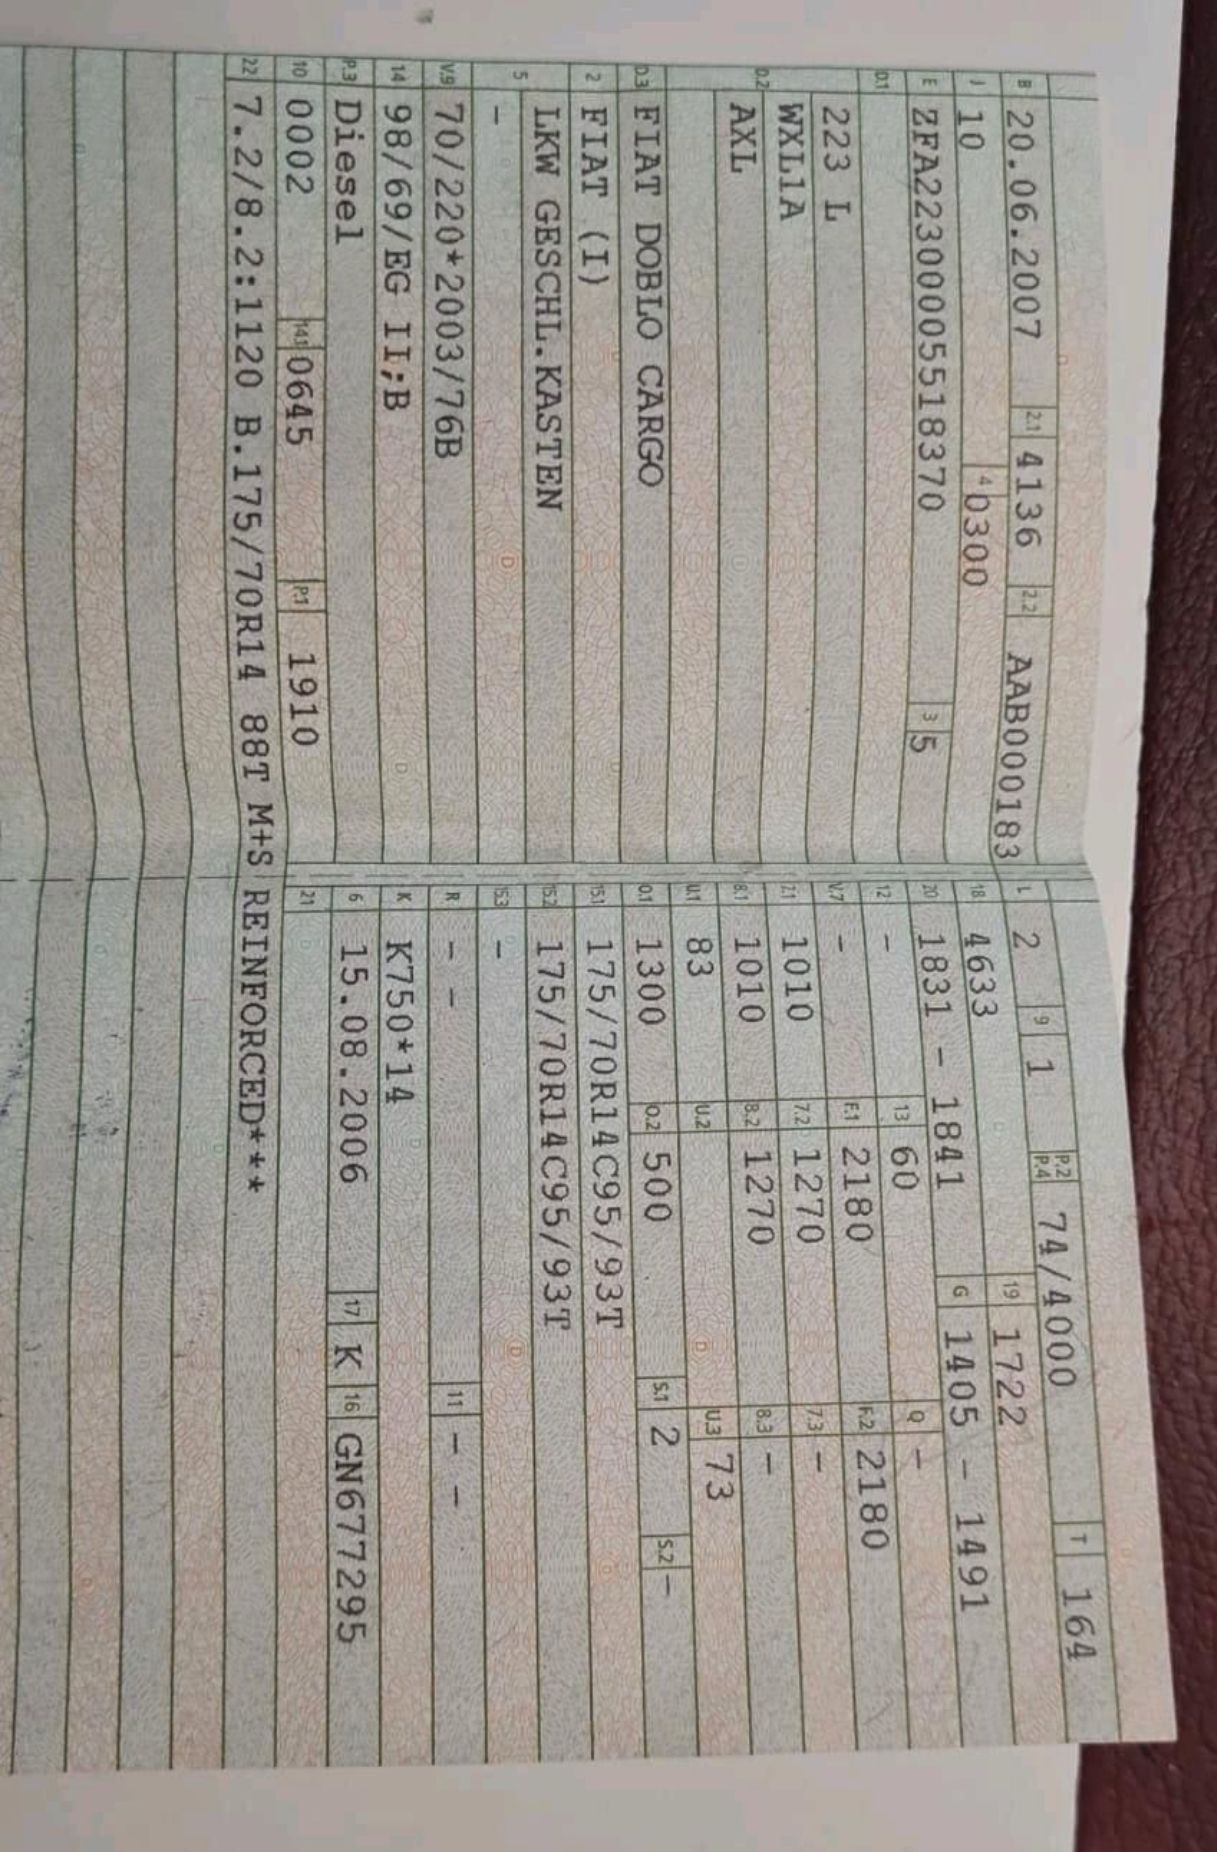 B 20.06.2007 2.1 4136 2.2 AAB000183
J 10 4 0300
E ZFA22300005518370 3 5
D.1
223 L
D.2 WXL1A
AXL
D.3 FIAT DOBLO CARGO
2 FIAT (I)
5 LKW GESCHL.KASTEN
-
V.9 70/220*2003/76B
14 98/69/EG II;B
P.3 Diesel
10 0002 14.1 0645 P.1 1910
22 7.2/8.2:1120 B.175/70R14 88T M+S REINFORCED***
L 2 9 1 P.2 P.4 74/4000 T 164
18 4633 19 1722
20 1831 - 1841 G 1405 - 1491
12 - 13 60 Q -
V.7 - F.1 2180 F.2 2180
7.1 1010 7.2 1270 7.3 -
8.1 1010 8.2 1270 8.3 -
U.1 83 U.2 U.3 73
O.1 1300 O.2 500 S.1 2 S.2 -
15.1 175/70R14C95/93T
15.2 175/70R14C95/93T
15.3 -
R - - 11 - -
K K750*14
6 15.08.2006 17 K 16 GN677295
21